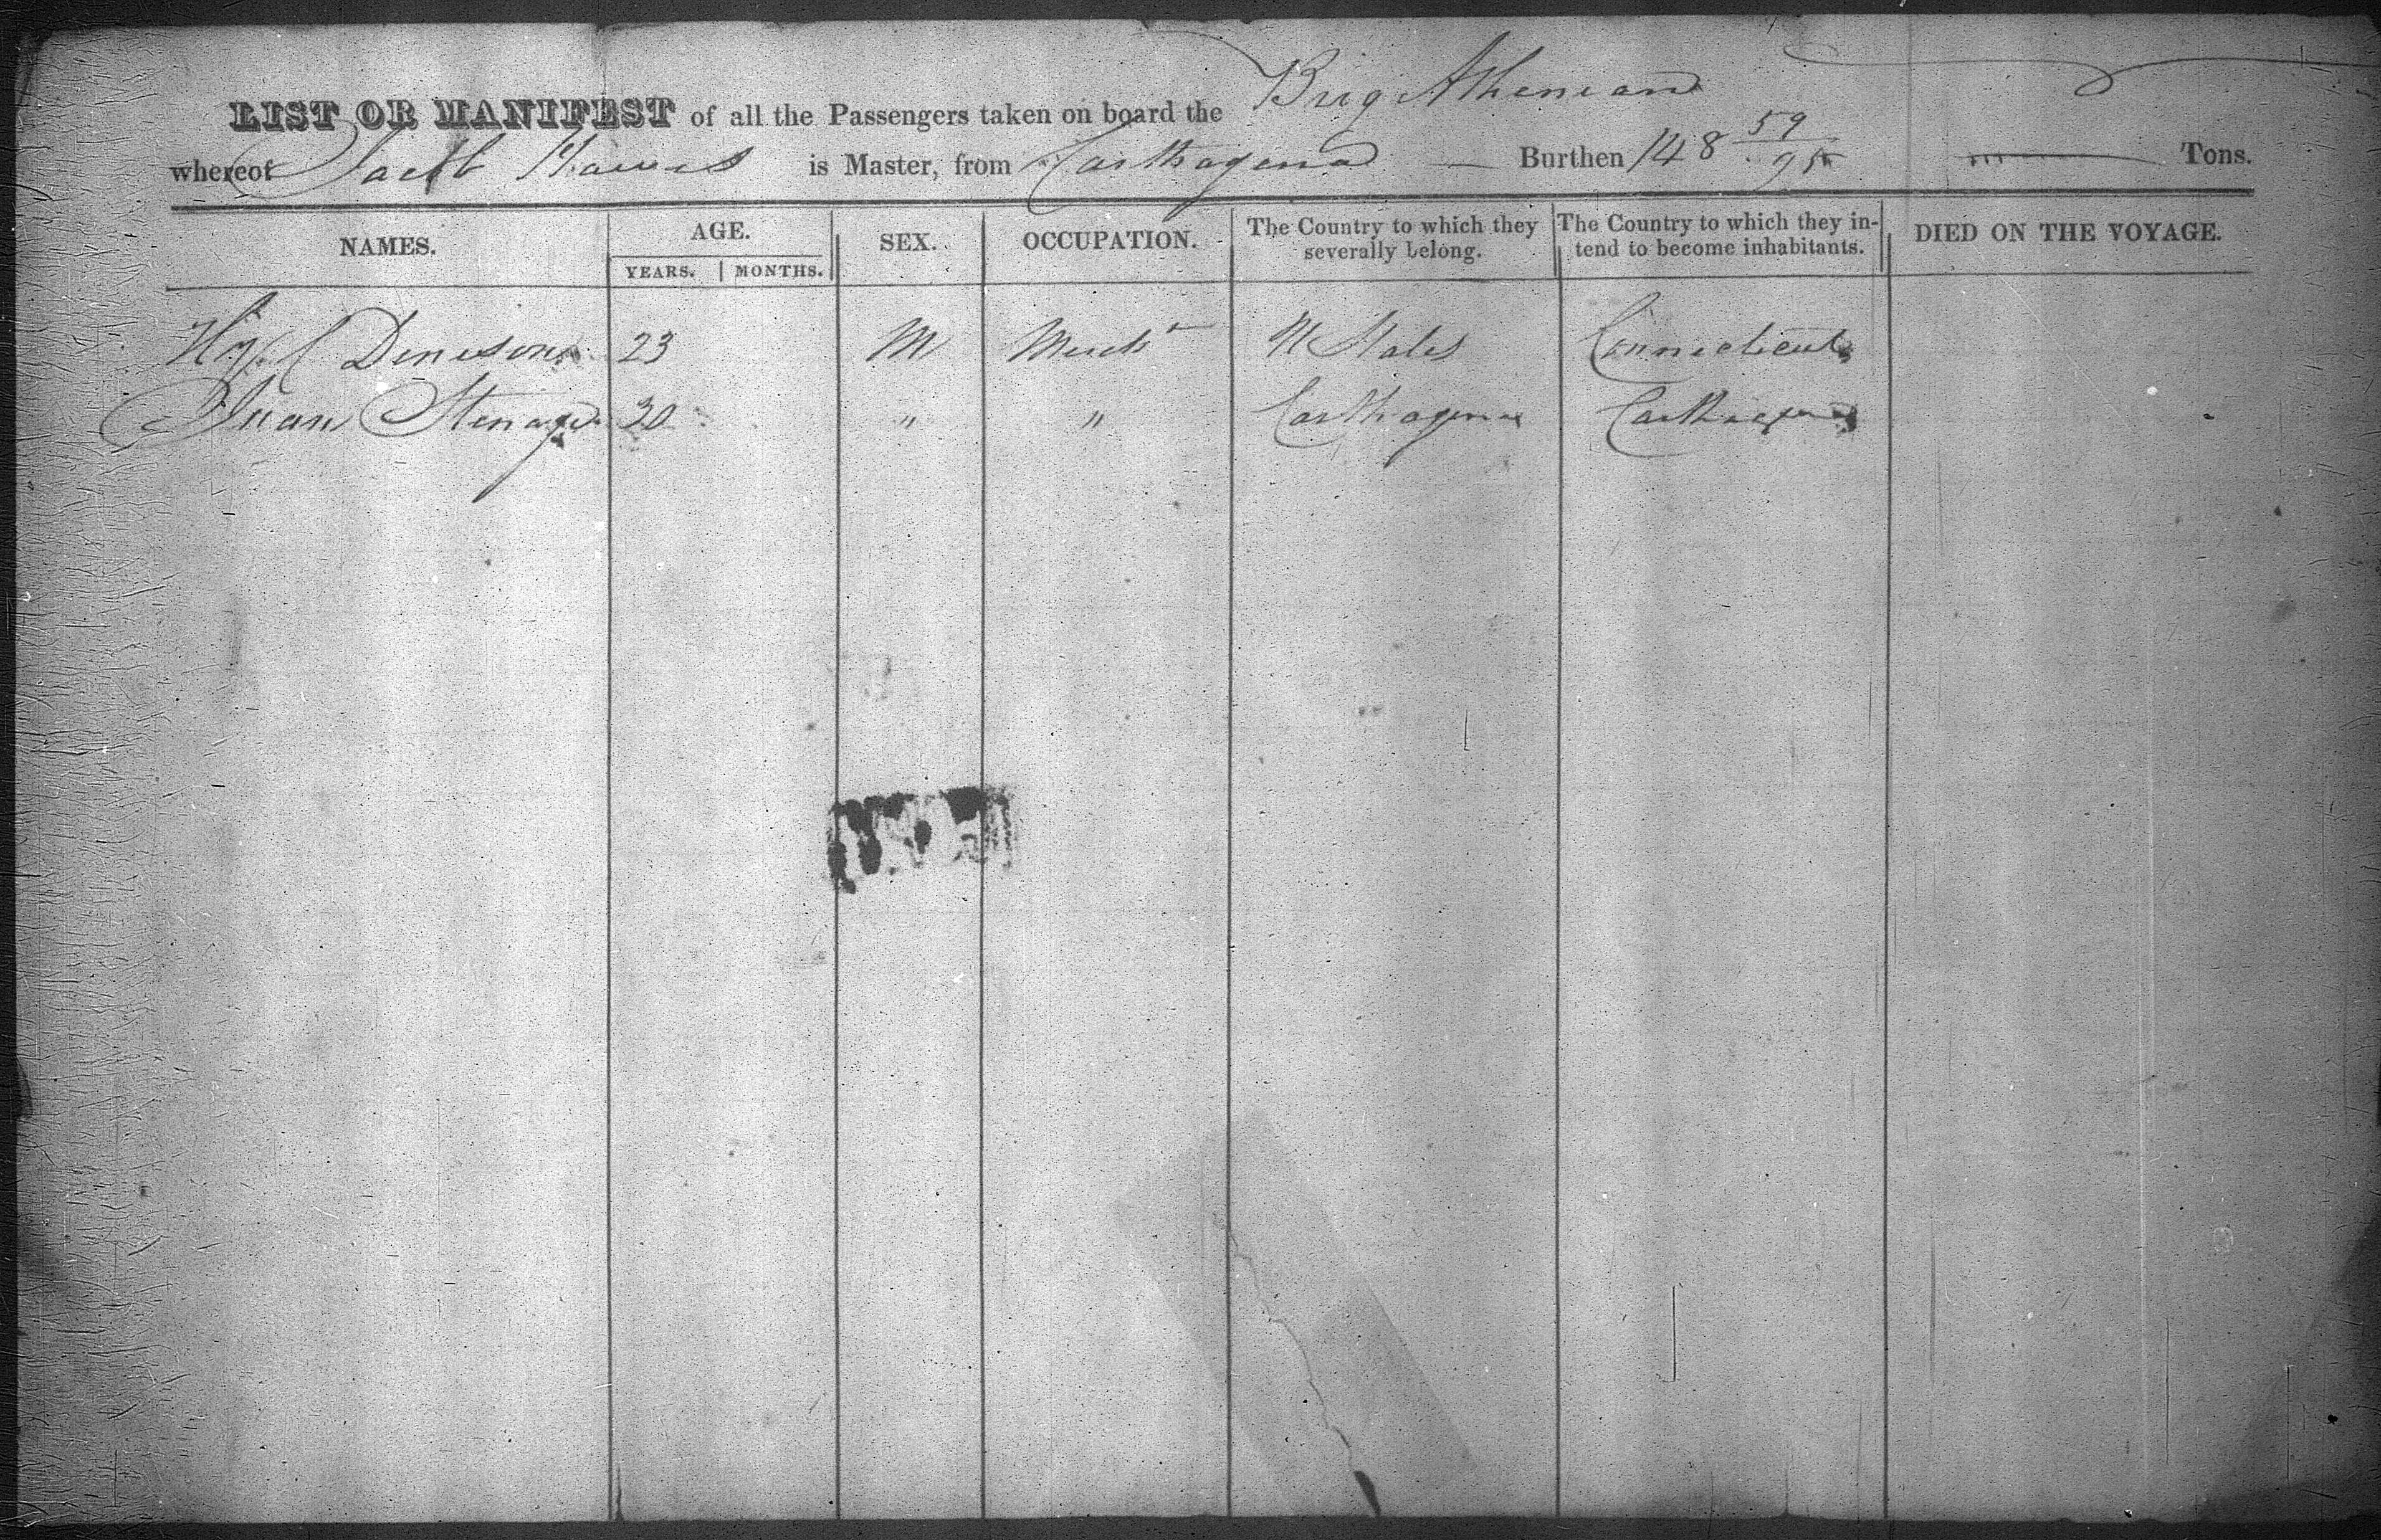 LIST OR MANIFEST of all the Passengers taken on board the Brig Athenian
whereof Jacob Hawes is Master, from Carthagena — Burthen 148 59/95 Tons.
NAMES. AGE. YEARS. MONTHS. SEX. OCCUPATION. The Country to which they severally belong. The Country to which they intend to become inhabitants. DIED ON THE VOYAGE.
C Denison 23 M Mercht U States Connecticut
Juan 30 " " Carthagena Carthagena